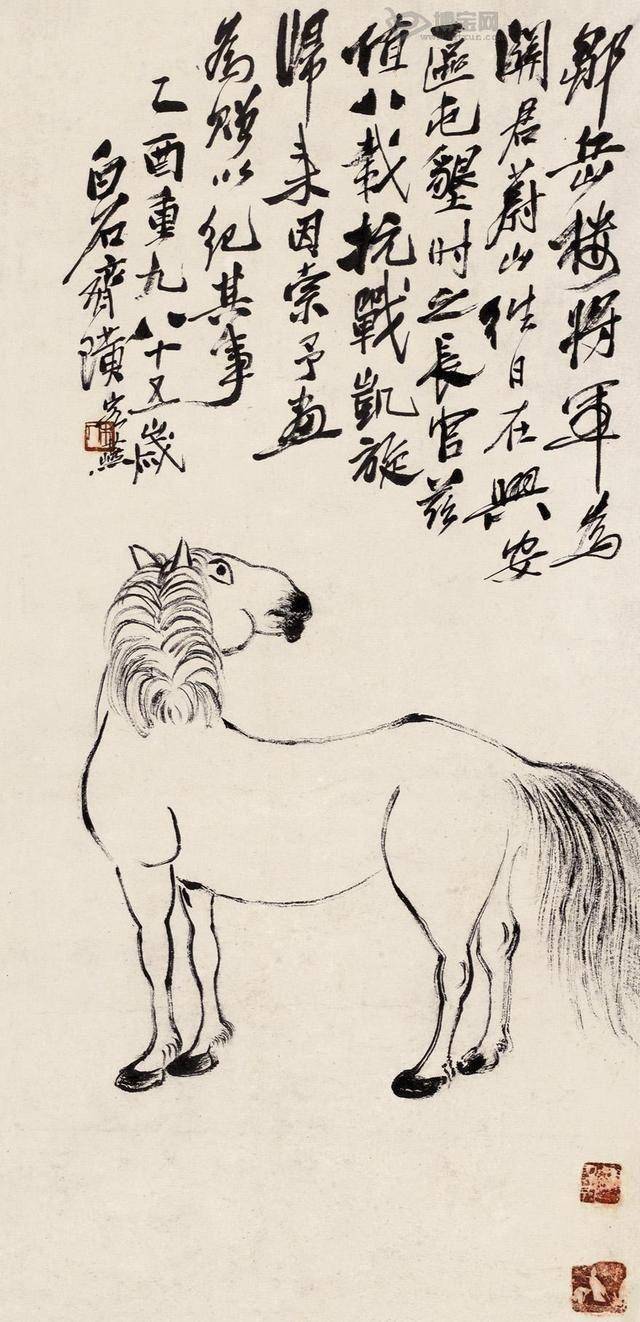 鄒岳樓將軍為
關君蔚山往日在興安
區屯墾时之長官茲
值八載抗戰凱旋
歸來因索予畫
為贈以紀其事
乙酉重九八十五歲
白石齊璜
博宝网